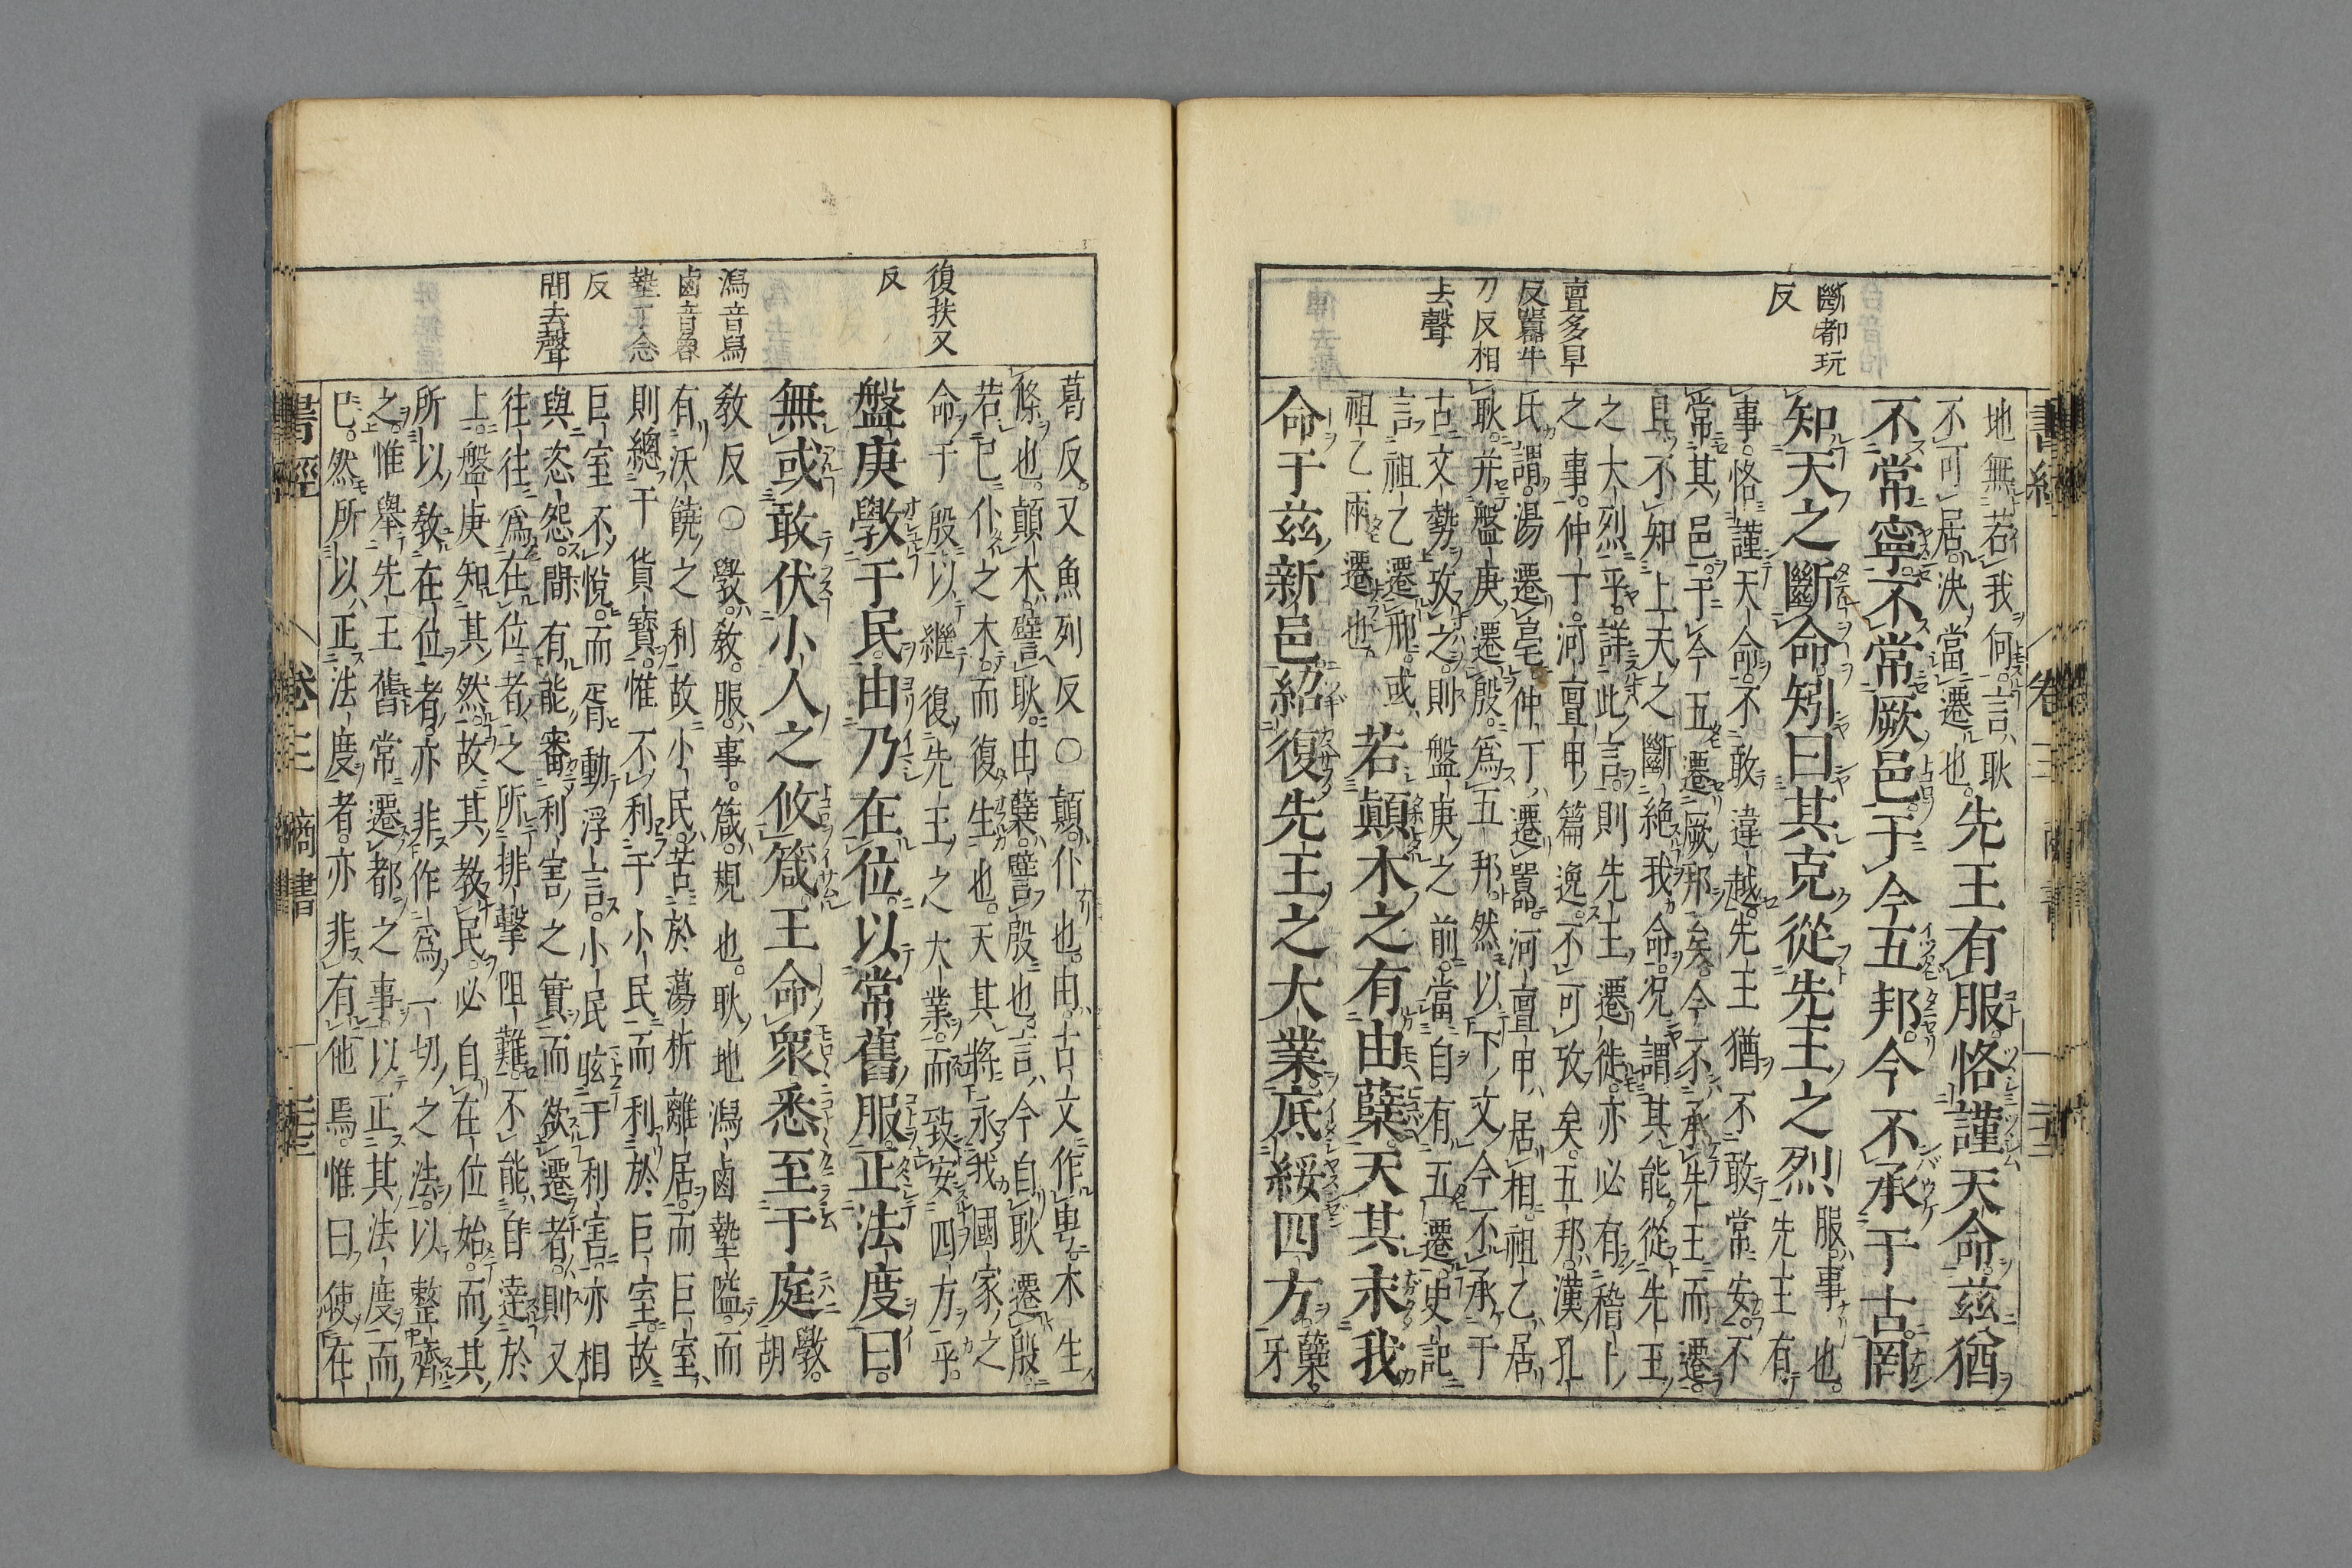 書經　卷三　商書
斷都玩
反
亶多早
反囂牛
刀反相
去聲
地無若我何言耿
不可居決當遷也。
先王有服。恪謹天命。茲猶
不常寧。不常厥邑。于今五邦。今不承于古。罔
知天之斷命。矧曰其克從先王之烈
服。事也。
先王有
事。恪謹天命。不敢違越。先王猶不敢常安。不
常其邑。于今五遷厥邦矣。今不承先王而遷。
且不知上天之斷絕我命。况謂其能從先王
之大烈乎。詳此言。則先王遷徙。亦必有稽卜
之事。仲丁。河亶甲篇逸。不可攷矣。五邦漢孔
氏謂。湯遷亳。仲丁遷囂。河亶甲居相。祖乙居
耿。并盤庚遷殷。爲五邦。然以下文今不承于
古文勢攷之。則盤庚之前。當自有五遷。史記
言。祖乙遷邢。或
祖乙兩遷也
若顛木之有由蘖。天其永我
命于茲新邑。紹復先王之大業。底綏四方。
蘖。
牙
復扶又
反
潟音舄
鹵音魯
墊丁念
反
間去聲
葛反。又魚列反○顛。仆也。由。古文作甹。木生
條也。顛木譬耿。由蘖。譬殷也。言今自耿遷殷。
若已仆之木。而復生也。天其將永我國家之
命于殷。以繼復先王之大業。而致安四方乎。
盤庚斆于民。由乃在位。以常舊服。正法度。曰。
無或敢伏小人之攸箴。王命衆悉至于庭
斆。
胡
教反○斆。教。服。事。箴。規也。耿地潟鹵墊隘。而
有沃饒之利。故小民。苦於蕩析離居。而巨室
則總于貨寶。惟不利于小民。而利於巨室。故
巨室不悅。而胥動浮言。小民眩于利害。亦相
與咨怨。間有能審利害之實。而欲遷者。則又
往往爲在位者之所排擊阻難。不能自達於
上。盤庚知其然。故其教民。必自在位始。而其
所以教在位者。亦非作爲一切之法。以整齊
之。惟舉先王舊常遷都之事。以正其法度而
已。然所以正法度者。亦非有他焉。惟曰。使在
書經　卷三　商書